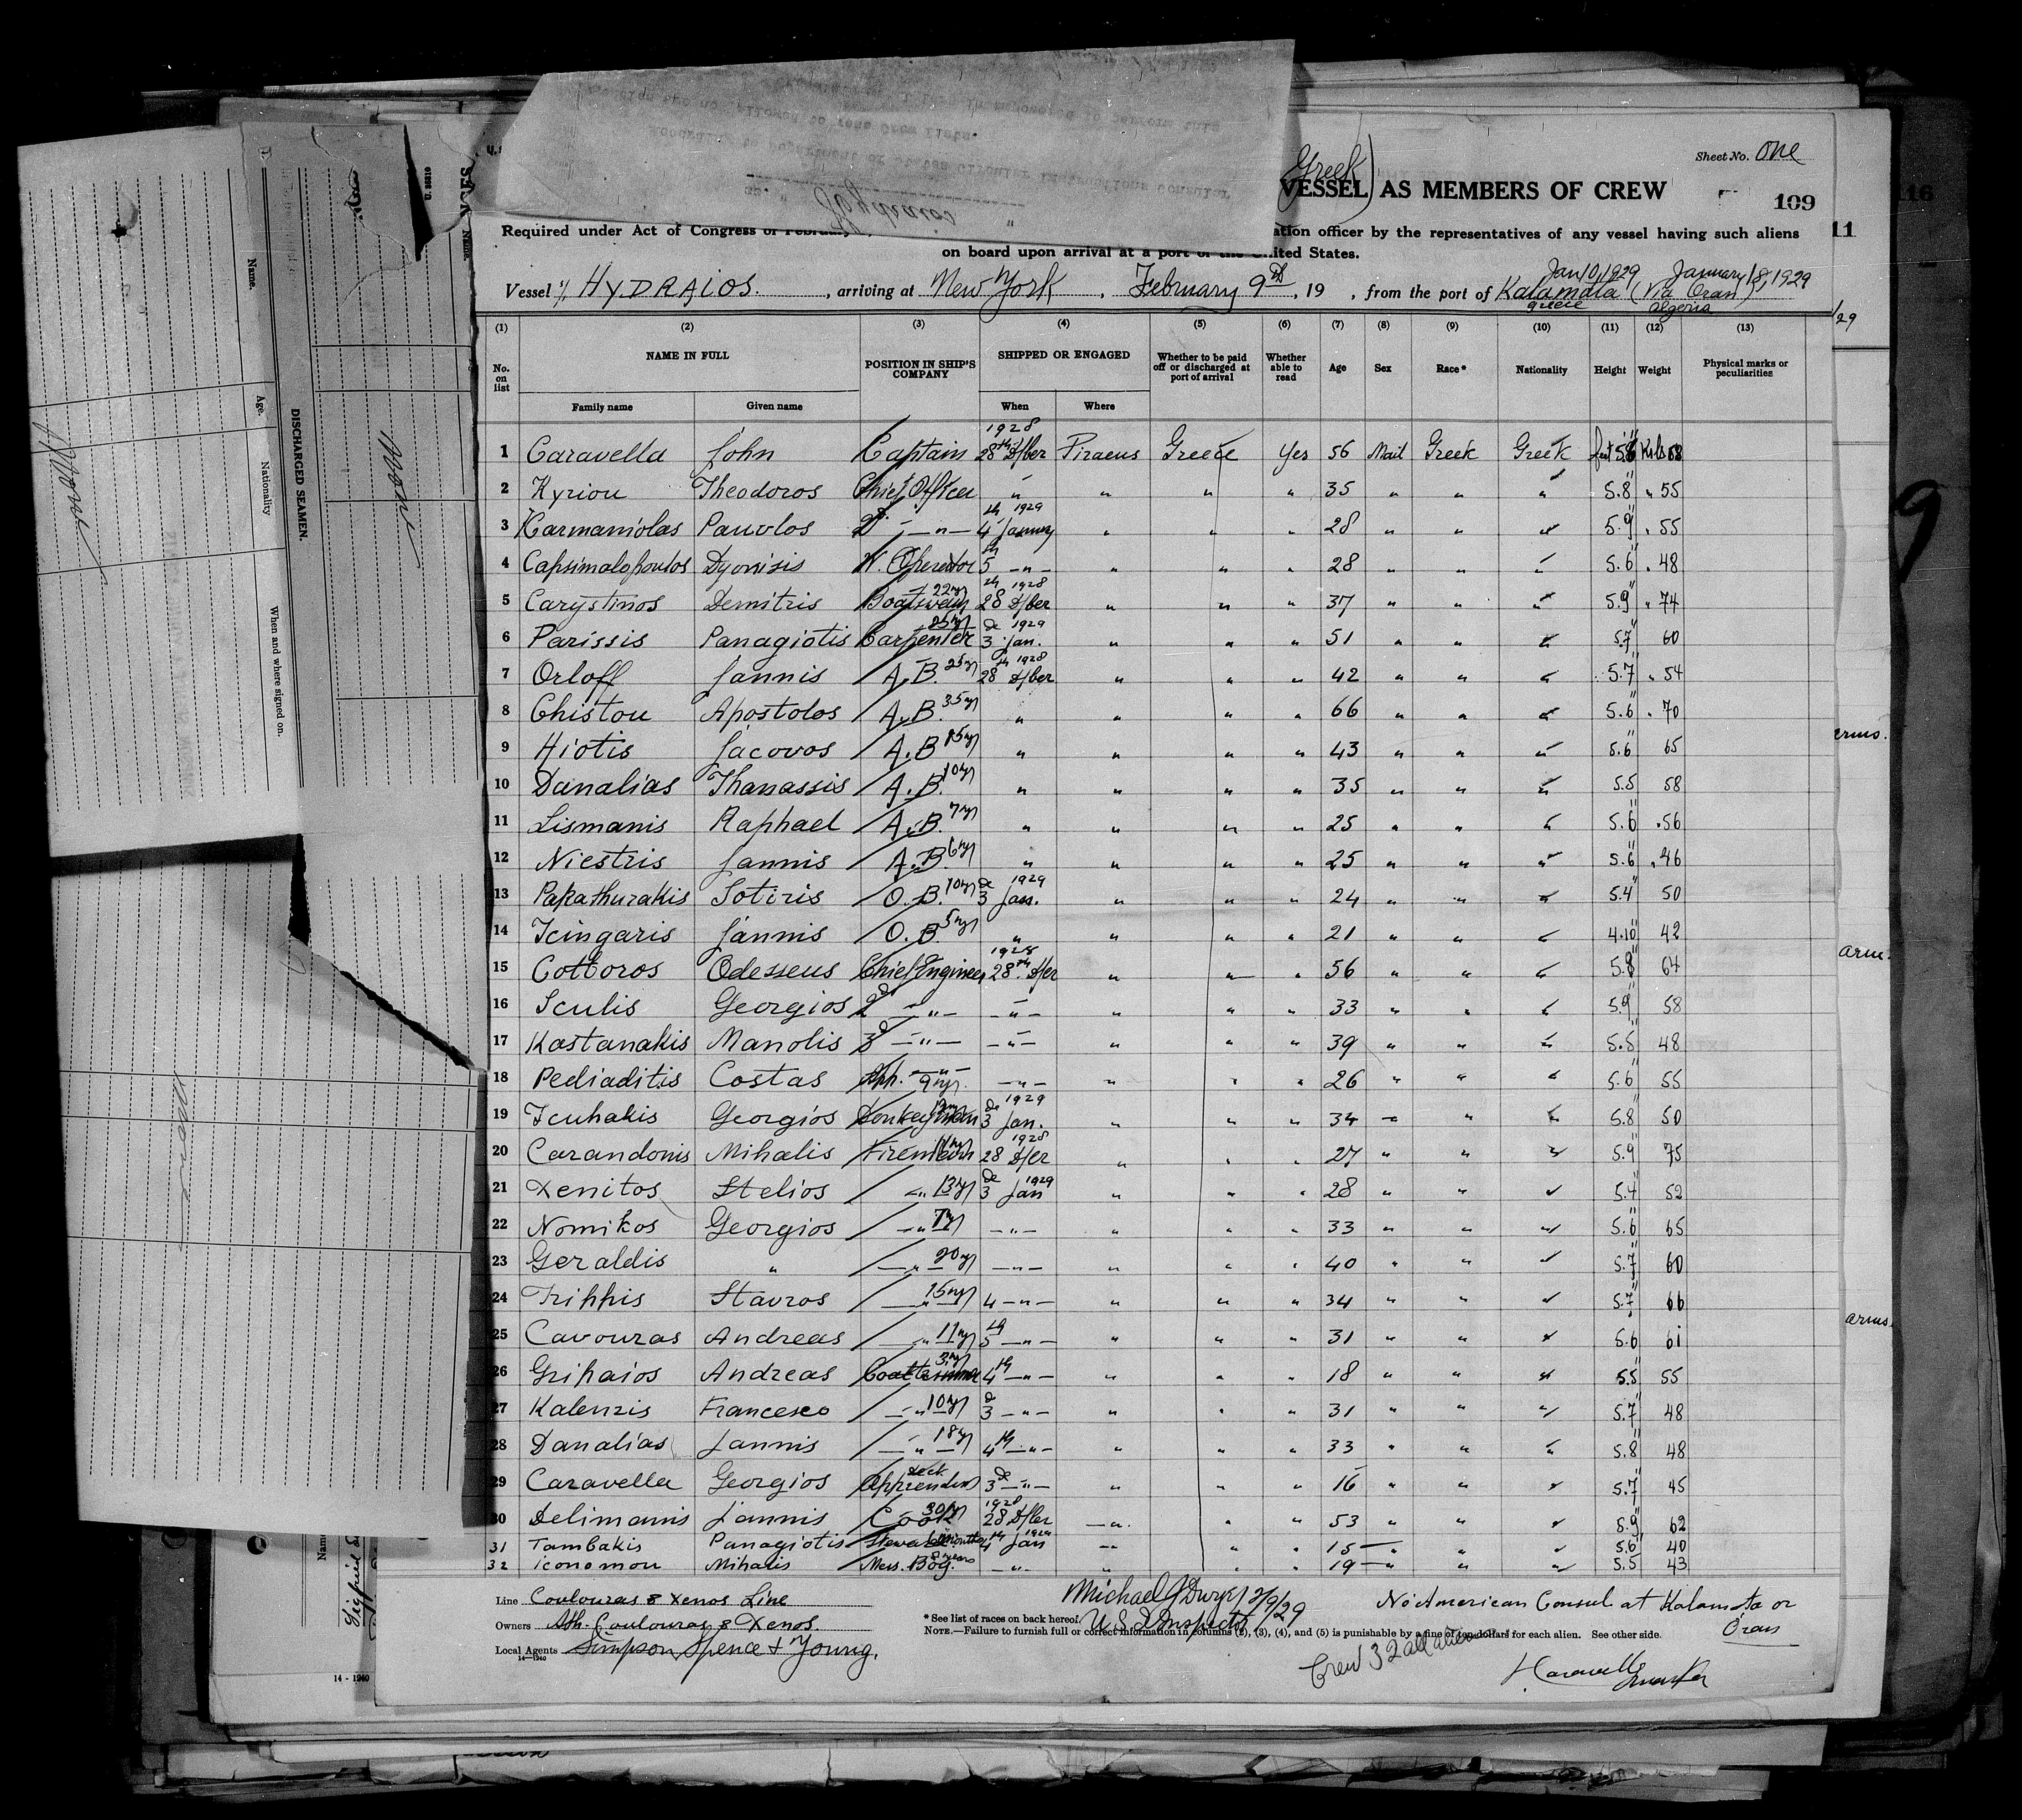 Sheet No. One
Greek)
VESSEL AS MEMBERS OF CREW
109
116
11
Required under Act of Congress of February
ation officer by the representatives of any vessel having such aliens
on board upon arrival at a port of the United States.
Jan 10, 1929 January 18, 1929
Vessel HYDRAIOS. , arriving at New York , February 9th , 19 , from the port of Kalamata (Via Oran)
Greece Algeria
(1) (2) (3) (4) (5) (6) (7) (8) (9) (10) (11) (12) (13)
No. on list NAME IN FULL POSITION IN SHIP'S COMPANY SHIPPED OR ENGAGED Whether to be paid off or discharged at port of arrival Whether able to read Age Sex Race* Nationality Height Weight Physical marks or peculiarities
Family name Given name When Where
1 Caravella John Captain 1928 28th D/ber Piraeus Greece Yes 56 Mail Greek Greek feet 5.8 Kils 68
2 Kyriou Theodoros Chief Officer " " " " 35 " " " 5.8 " 55
3 Karmaniolas Pauvlos 2d —"— 4th January 1929 " " " 28 " " " 5.9 " 55
4 Capsimalopoulos Dyonisis W. Operator 5th —"— " " " 28 " " " 5.6 " 48
5 Carystinos Demitris Boatswain 22 yrs 28th D/ber 1928 " " " 37 " " " 5.9 " 74
6 Parissis Panagiotis Carpenter 25 yrs 3 Jan. 1929 " " " 51 " " " 5.7 60
7 Orloff Jannis A.B. 25 yrs 28th D/ber 1928 " " " 42 " " " 5.7 " 54
8 Christou Apostolos A.B. 35 yrs " " " " 66 " " " 5.6 " 70
9 Hiotis Jacovos A.B. 15 yrs " " " " 43 " " " 5.6 65
10 Danalias Thanassis A.B. 10 yrs " " " " 35 " " " 5.5 58
11 Lismanis Raphael A.B. 7 yrs " " " " 25 " " " 5.6 " 56
12 Niestris Jannis A.B. 6 yrs " " " " 25 " " " 5.6 " 46
13 Papathurakis Sotiris O.B. 10 yrs 3 Jan. 1929 " " " 24 " " " 5.4 50
14 Tcingaris Jannis O.B. 5 yrs " " " " 21 " " " 4.10 42
15 Cottoros Odesseus Chief Engineer 1928 28th D/er " " " 56 " " " 5.8 64
16 Sculis Georgios 2d —"— —"— " " " 33 " " " 5.9 58
17 Kastanakis Manolis 3d —"— —"— " " " 39 " " " 5.5 48
18 Pediaditis Costas App. —"— 9 yrs. —"— " " " 26 " " " 5.6 55
19 Tcuhakis Georgios Donkeyman 3 Jan. 1929 " " " 34 " " " 5.8 50
20 Carandonis Mihalis Fireman 28 D/er 1928 " " " 27 " " " 5.9 75
21 Xenitos Stelios " 13 yrs 3 Jan 1929 " " " 28 " " " 5.4 52
22 Nomikos Georgios —"— 7 yrs —"— " " " 33 " " " 5.6 65
23 Geraldis " —"— 20 yrs —"— " " " 40 " " " 5.7 60
24 Trippis Stavros —"— 15 yrs 4 —"— " " " 34 " " " 5.7 66
25 Cavouras Andreas —"— 11 yrs 5th —"— " " " 31 " " " 5.6 61
26 Gripaios Andreas Coaltrimmer 3 yrs 4th —"— " " " 18 " " " 5.5 55
27 Kalenzis Francesco —"— 10 yrs 3d —"— " " " 31 " " " 5.7 48
28 Danalias Jannis —"— 18 yrs 4th —"— " " " 33 " " " 5.8 48
29 Caravella Georgios deck Apprendis 3d —"— " " " 16 " " " 5.7 45
30 Delimanis Jannis Cook 30 yrs 1928 28 D/ber —"— " " 53 " " " 5.9 62
31 Tambakis Panagiotis Steward 6 months 4th Jan 1929 —"— " " 15 " " " 5.6 40
32 iconomou Mihalis Mess. Boy. 8 years —"— " " " 19 " " " 5.5 43
Line Coulouras & Xenos Line
Owners Ath. Coulouras & Xenos.
Local Agents Simpson, Spence & Young.
14—1940
Michael J Dwyer 2/9/29
U S Inspector
* See list of races on back hereof.
NOTE.—Failure to furnish full or correct information in columns (2), (3), (4), and (5) is punishable by a fine of ten dollars for each alien. See other side.
No American Consul at Kalamata or
Oran
Crew 32 all aliens
J. Caravella
Master
DISCHARGED SEAMEN.
Name.
Age.
Nationality
When and where signed on.
None
None
None
Hydraios
14 - 1940
29
arms.
arm.
arms.
9